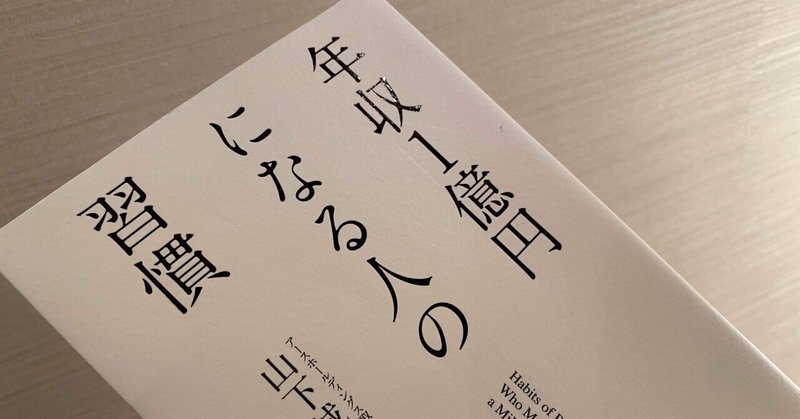 年収1億円
になる人の
習慣
アースホールディングス
山下
Habits of
Who
a